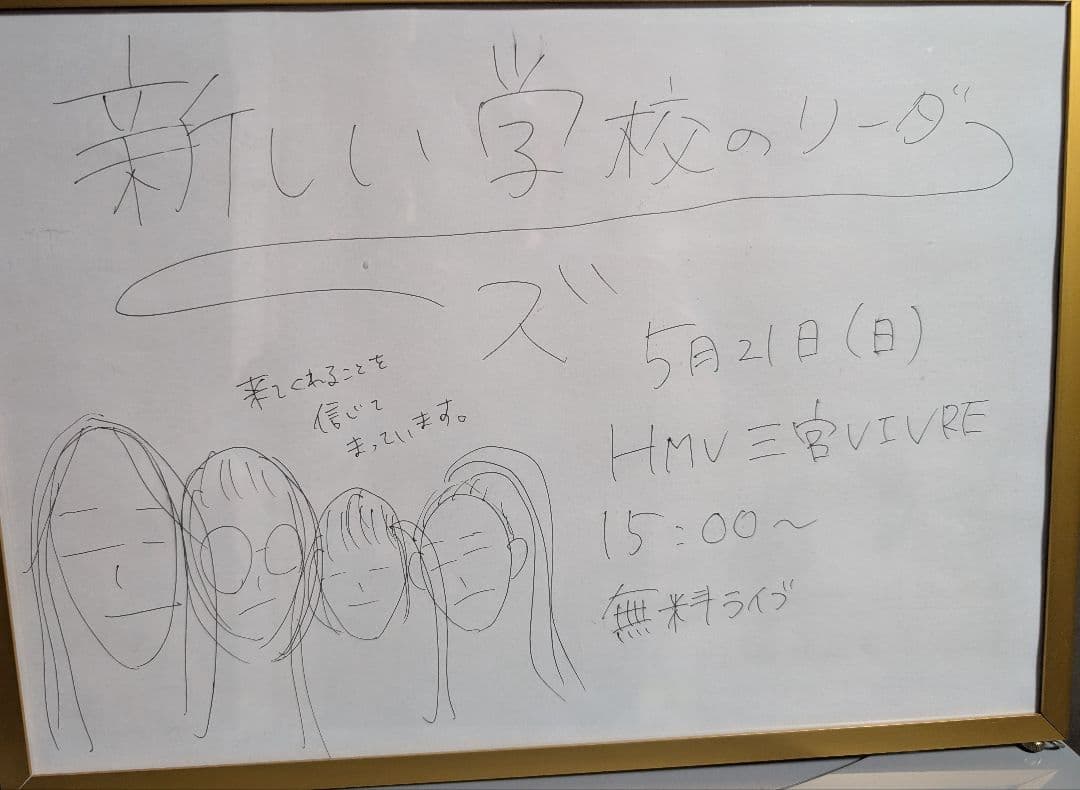 新しい学校のリーダー
ズ
来てくれることを
信じて
まっています。
5月21日(日)
HMV三宮VIVRE
15:00～
無料ライブ